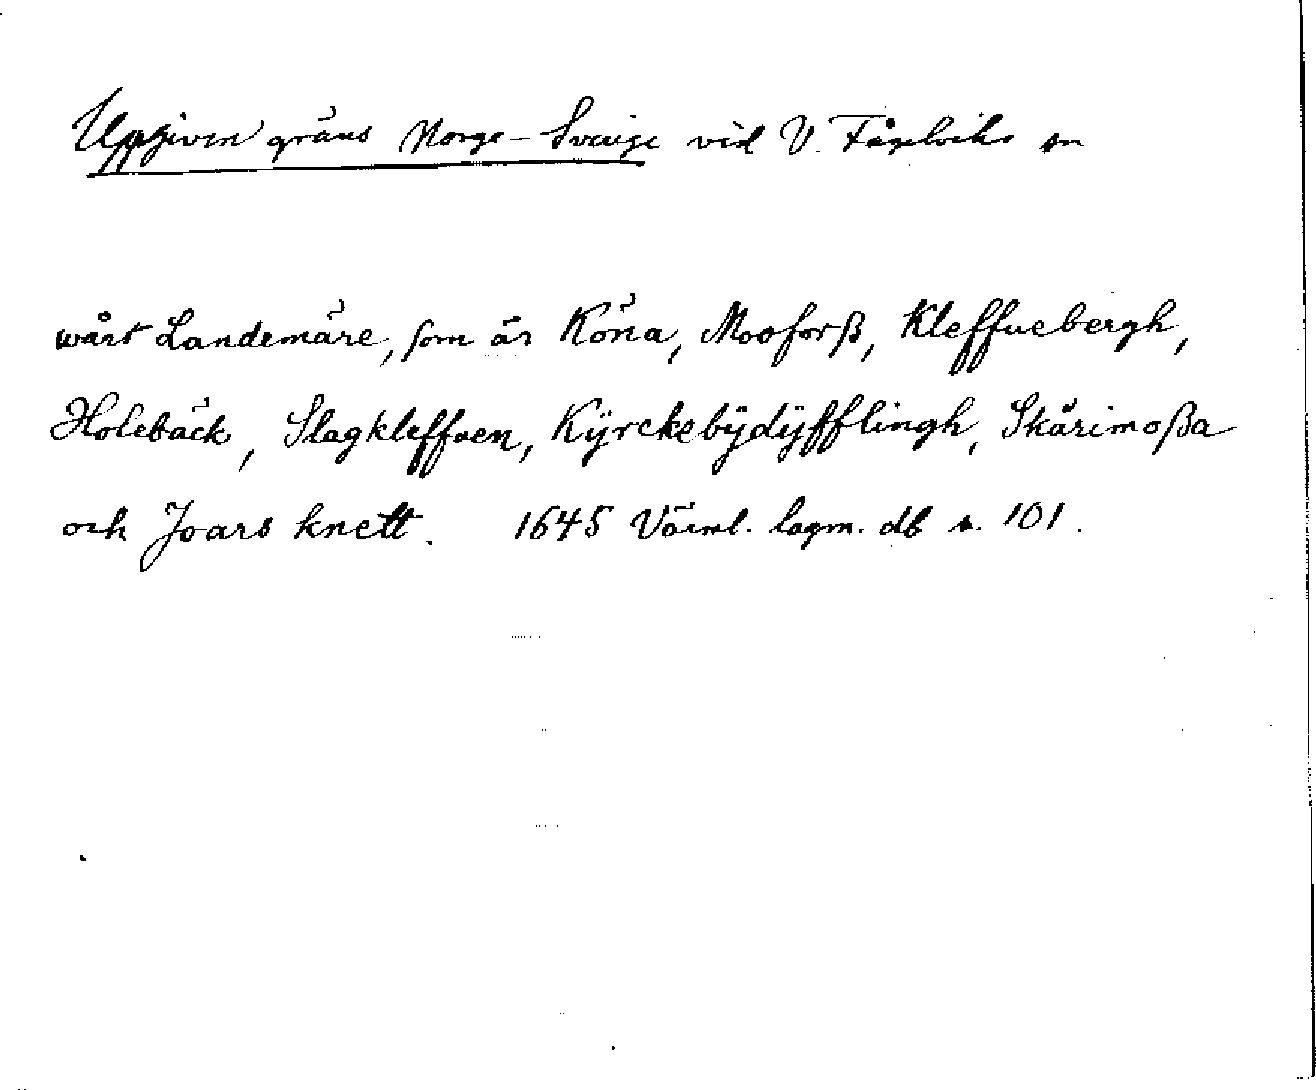 Uppgiven gräns Norge-Sverige vid V. Fågelviks sn
wårt Landemäre, som är Köna, Mooforß, Kleffuebergh,
Holebäck, Slagkleffuen, Kÿrckebÿdÿfflingh, Skärimoßa
och Joars knett. 1645 Värml. lagm. db s. 101.